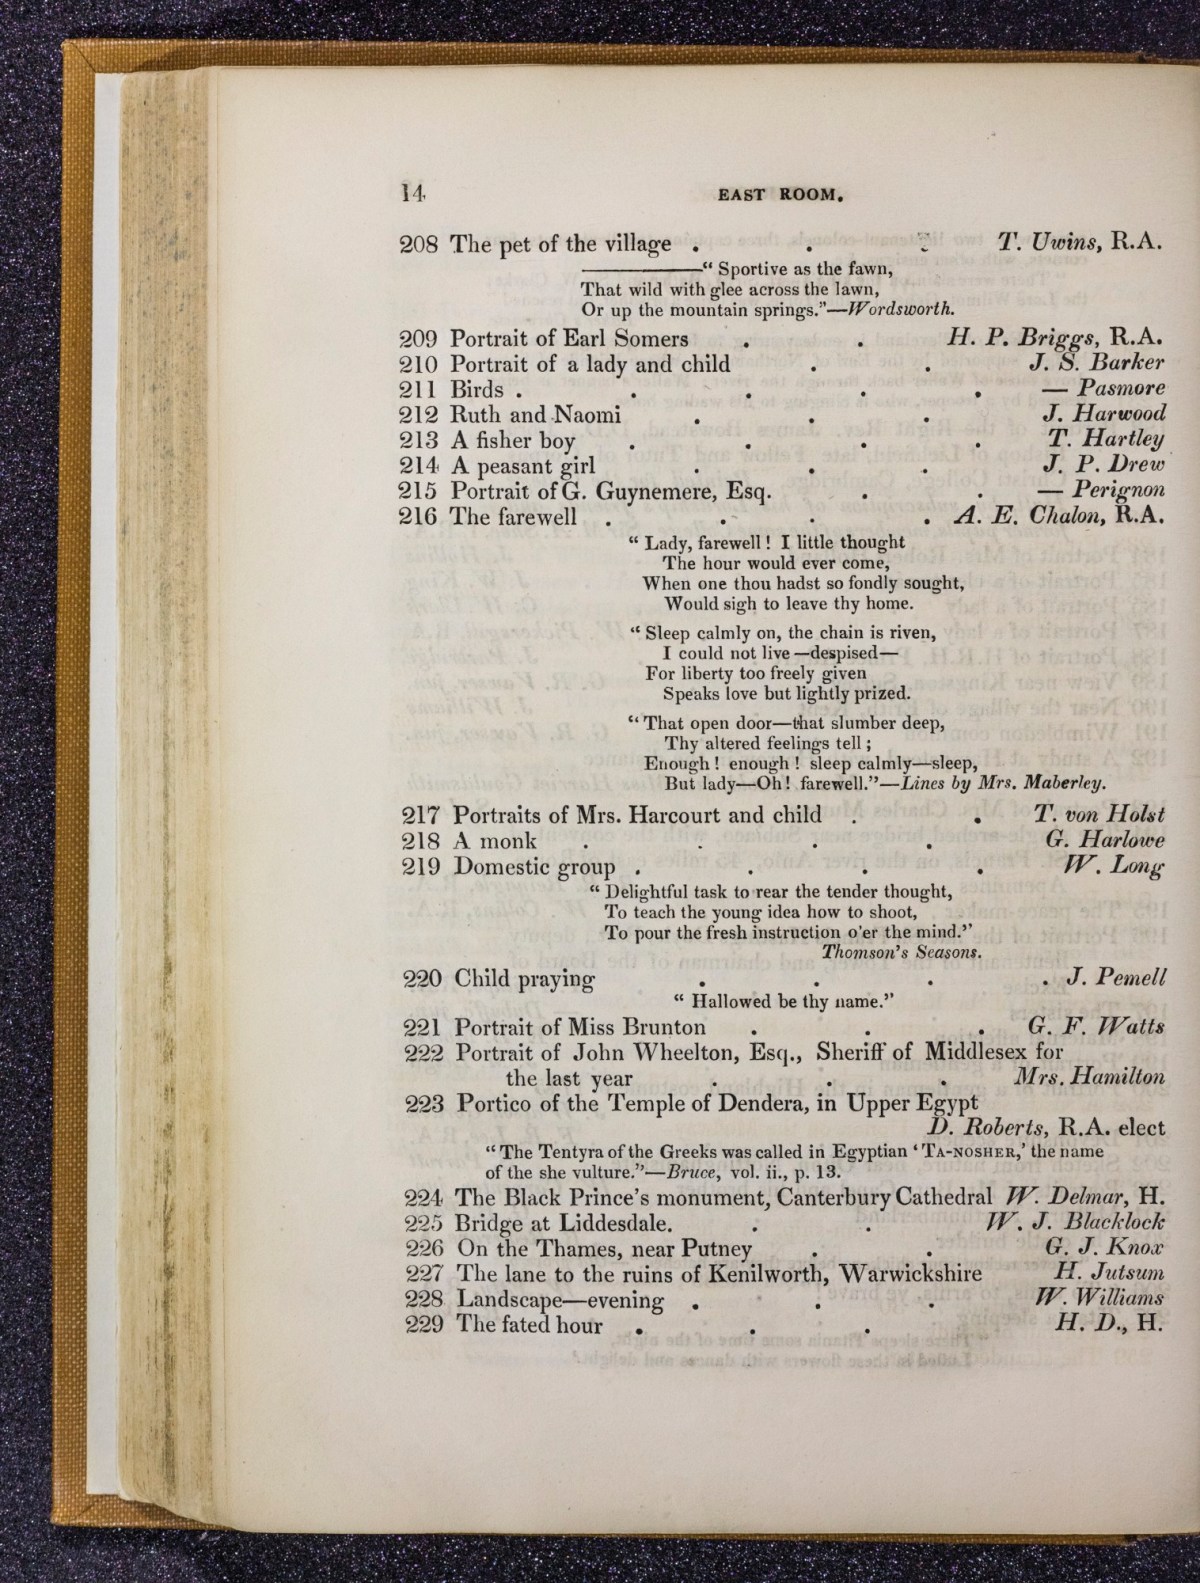 14
EAST ROOM.
208 The pet of the village . . . T. Uwins, R.A.
————“ Sportive as the fawn,
That wild with glee across the lawn,
Or up the mountain springs.”—Wordsworth.
209 Portrait of Earl Somers . . H. P. Briggs, R.A.
210 Portrait of a lady and child . . J. S. Barker
211 Birds . . . . . — Pasmore
212 Ruth and Naomi . . . J. Harwood
213 A fisher boy . . . . T. Hartley
214 A peasant girl . . . J. P. Drew
215 Portrait of G. Guynemere, Esq. . . — Perignon
216 The farewell . . . . A. E. Chalon, R.A.
“ Lady, farewell ! I little thought
The hour would ever come,
When one thou hadst so fondly sought,
Would sigh to leave thy home.
“ Sleep calmly on, the chain is riven,
I could not live—despised—
For liberty too freely given
Speaks love but lightly prized.
“ That open door—that slumber deep,
Thy altered feelings tell ;
Enough ! enough ! sleep calmly—sleep,
But lady—Oh ! farewell.”—Lines by Mrs. Maberley.
217 Portraits of Mrs. Harcourt and child . . T. von Holst
218 A monk . . . . G. Harlowe
219 Domestic group . . . . W. Long
“ Delightful task to rear the tender thought,
To teach the young idea how to shoot,
To pour the fresh instruction o'er the mind.”
Thomson's Seasons.
220 Child praying . . . . J. Pemell
“ Hallowed be thy name.”
221 Portrait of Miss Brunton . . . G. F. Watts
222 Portrait of John Wheelton, Esq., Sheriff of Middlesex for
the last year . . . Mrs. Hamilton
223 Portico of the Temple of Dendera, in Upper Egypt
D. Roberts, R.A. elect
“ The Tentyra of the Greeks was called in Egyptian ‘ TA-NOSHER,’ the name
of the she vulture.”—Bruce, vol. ii., p. 13.
224 The Black Prince's monument, Canterbury Cathedral W. Delmar, H.
225 Bridge at Liddesdale. . . W. J. Blacklock
226 On the Thames, near Putney . . G. J. Knox
227 The lane to the ruins of Kenilworth, Warwickshire H. Jutsum
228 Landscape—evening . . . W. Williams
229 The fated hour . . . H. D., H.